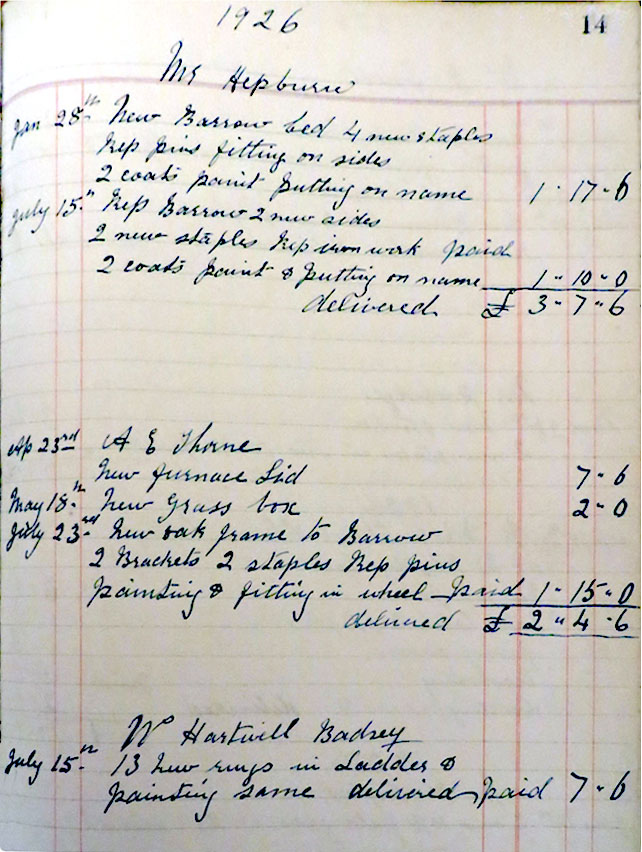 1926
14
Mr Hepburn
Jan 28th New Barrow bed 4 new staples
Rep pins fitting on sides
2 coats paint putting on name 1 - 17 - 6
July 15th Rep Barrow 2 new sides
2 new staples Rep iron work paid
2 coats paint & putting on name 1 " 10 " 0
delivered £ 3 " 7 " 6
Ap 23rd A E Thorne
New furnace Lid 7 - 6
May 18th New Grass box 2 - 0
July 23rd New oak frame to Barrow
2 Brackets 2 staples Rep pins
painting & fitting in wheel paid 1 - 15 " 0
delivered £ 2 " 4 - 6
Wm Hartwell Badsey
July 15th 13 New rungs in Ladder &
painting same delivered paid 7 - 6